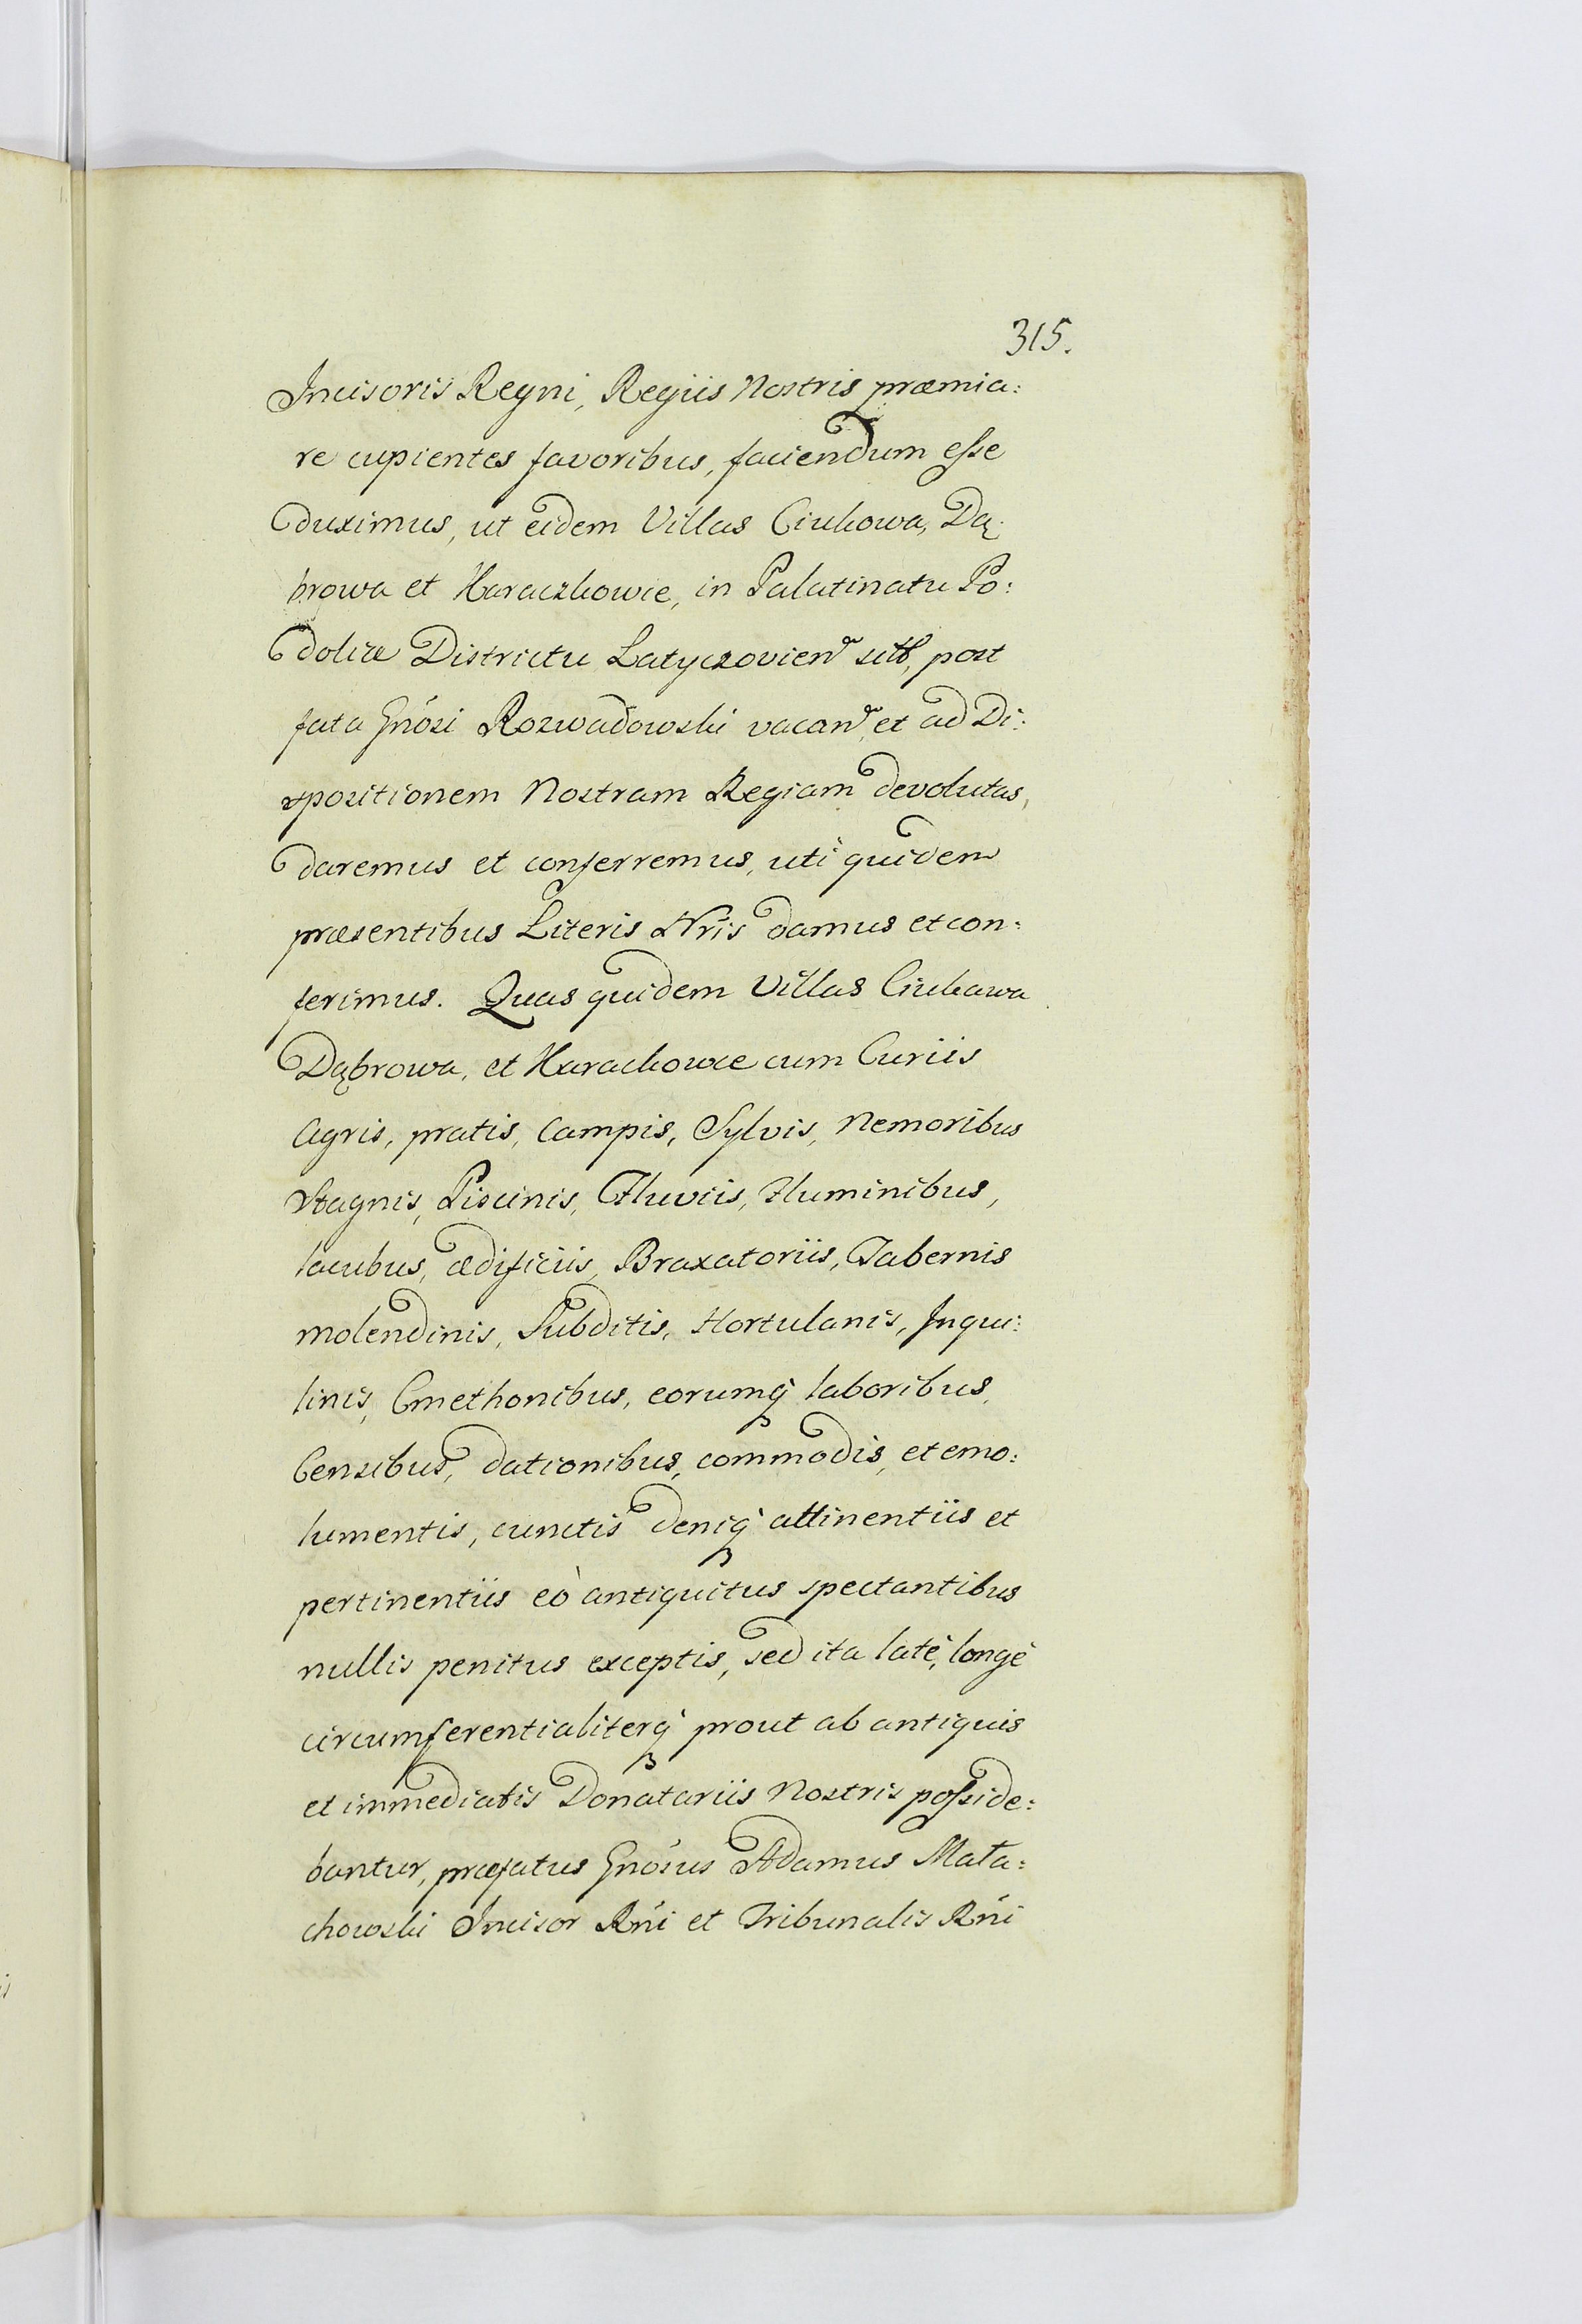 315.
Incisoris Regni, Regiis Nostris præmia:
re cupientes favoribus, faciendum esse
duximus, ut eidem Villas Ciukowa, Dą:
browa et Haraczkowce, in Palatinatu Po:
doliæ Districtu Latyczovien sitas, post
fata Gnosi Rozwadowski vacan et ad Di:
spositionem Nostram Regiam devolutas,
daremus et conferremus, uti quidem
præsentibus Literis Nris damus et con:
ferimus. Quas quidem Villas Ciukawa
Dąbrowa, et Harackowce cum Curiis
Agris, pratis, Campis, Sylvis, Nemoribus
Stagnis, Piscinis, Fluviis, Fluminibus,
lacubus, ædificiis, Braxatoriis, Tabernis
molendinis, Subditis, Hortulanis, Inqui:
linis, Cmethonibus, eorumq laboribus,
Censibus, dationibus, commodis, et emo:
lumentis, cunctis deniq attinentiis et
pertinentiis eò antiquitus spectantibus
nullis penitus exceptis, sed ita latè, longè
circumferentialiterq prout ab antiquis
et immediatis Donatariis Nostris posside:
bantur, præfatus Gnosus Adamus Mała:
chowski Incisor Rni et Tribunalis Rni